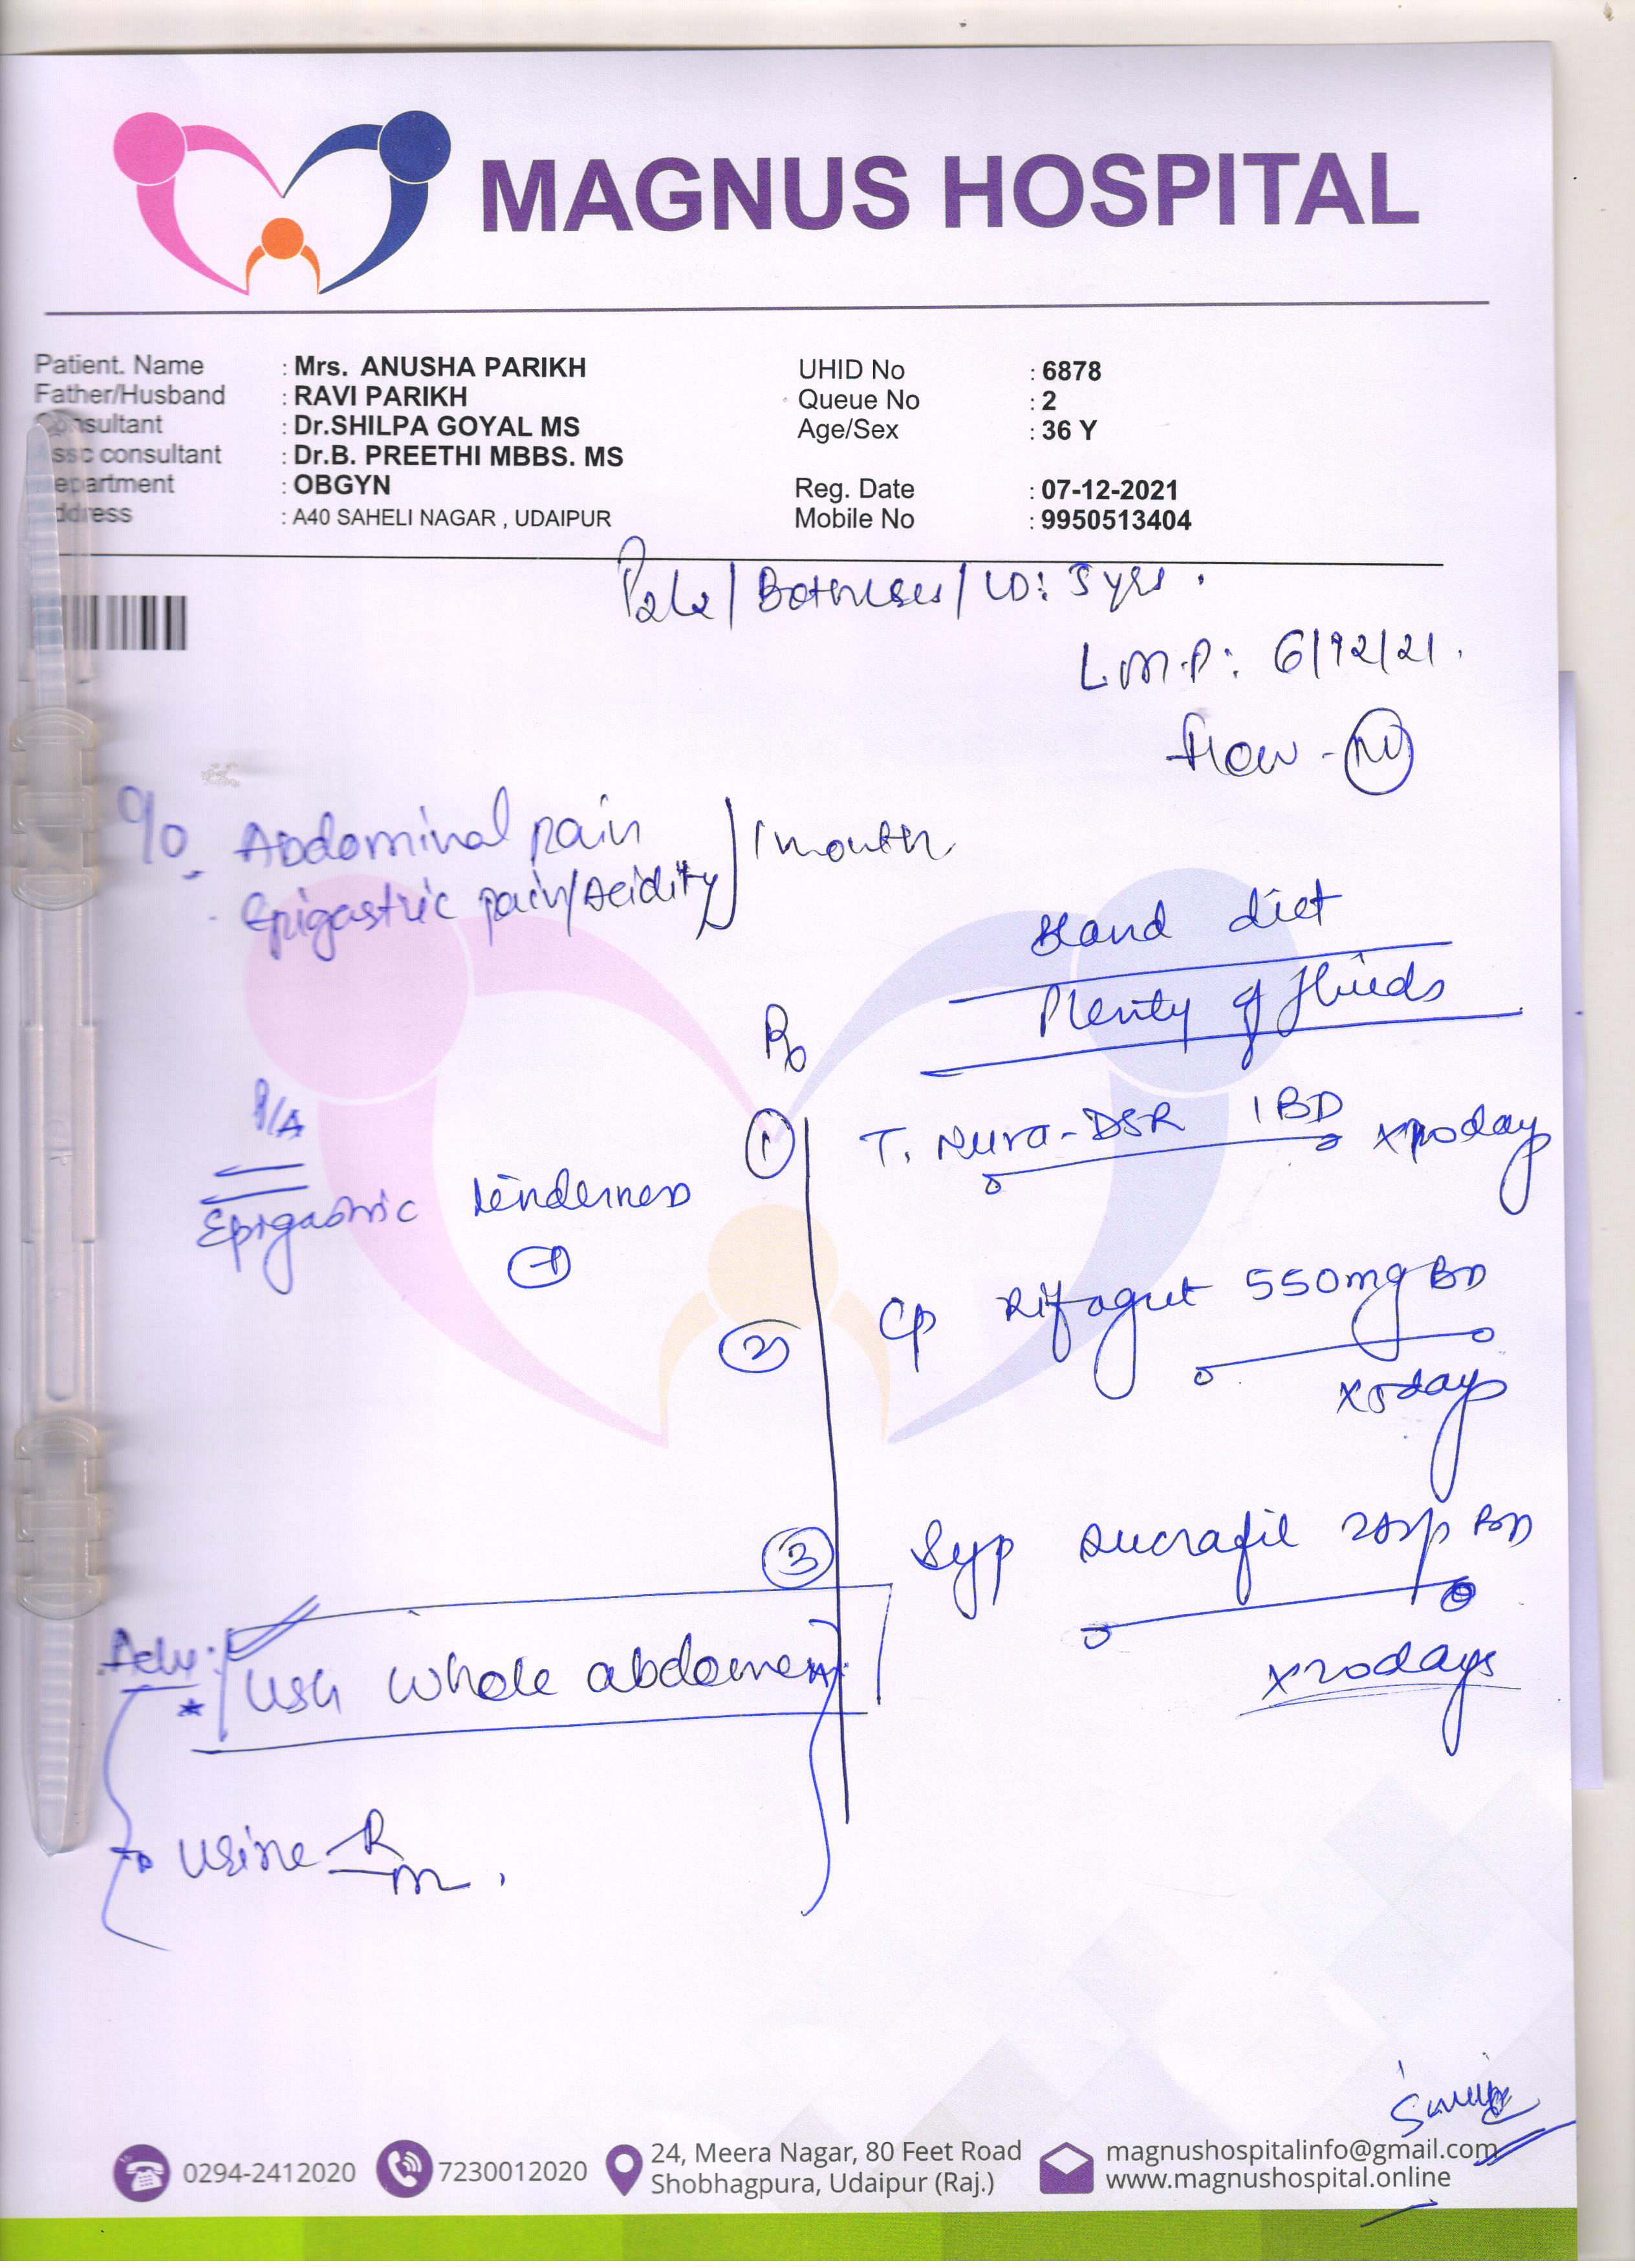 MAGNUS HOSPITAL
Patient. Name : Mrs. ANUSHA PARIKH
Father/Husband : RAVI PARIKH
Consultant : Dr.SHILPA GOYAL MS
Assc consultant : Dr.B. PREETHI MBBS. MS
Department : OBGYN
Address : A40 SAHELI NAGAR , UDAIPUR
UHID No : 6878
Queue No : 2
Age/Sex : 36 Y
Reg. Date : 07-12-2021
Mobile No : 9950513404
P2L2 / Both LSCS / LD: 3 yrs.
L.M.P: 6/12/21.
flow - N
C/o - Abdominal pain
- Epigastric pain/Acidity / 1 month
Bland diet
Plenty of fluids
Rx
P/A
Epigastric tenderness
+
① T. -DSR 1 BD x day
② Cp Rifagut 550mg BD
x 5 days
③ Syp Sucrafil 2tsp BD
x days
Adv:
* USG whole abdomen
Urine R/m.
0294-2412020
7230012020
24, Meera Nagar, 80 Feet Road
Shobhagpura, Udaipur (Raj.)
magnushospitalinfo@gmail.com
www.magnushospital.online